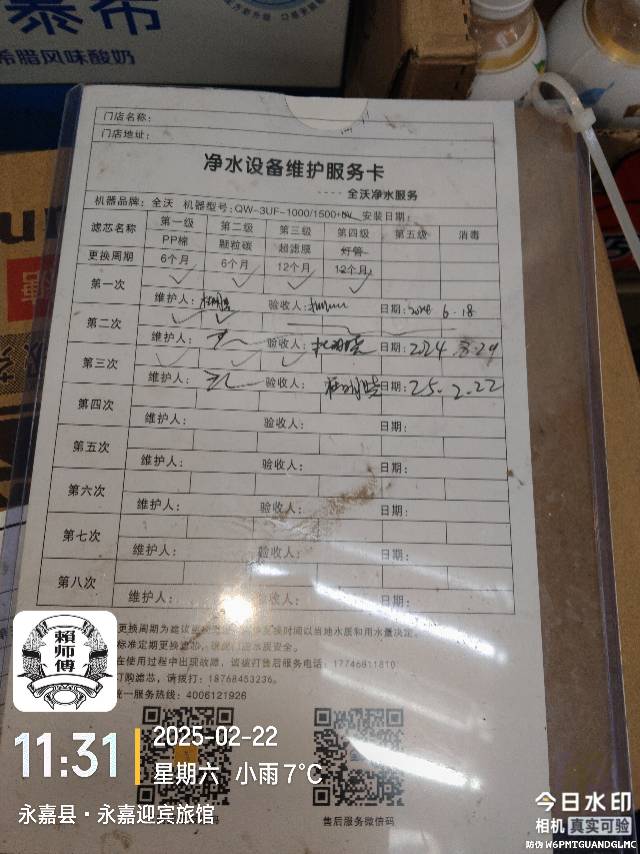 泰布
希腊风味酸奶
门店名称：
门店地址：
净水设备维护服务卡
---- 全沃净水服务
机器品牌：全沃 机器型号：QW-3UF-1000/1500 安装日期：
滤芯名称 第一级 第二级 第三级 第四级 第五级 消毒
PP棉 颗粒碳 超滤膜 好管
更换周期 6个月 6个月 12个月 12个月
第一次
维护人： 验收人： 日期： 6.18
第二次
维护人： 验收人： 日期：2024
第三次
维护人： 验收人： 日期：25.2.22
第四次
维护人： 验收人： 日期：
第五次
维护人： 验收人： 日期：
第六次
维护人： 验收人： 日期：
第七次
维护人： 验收人： 日期：
第八次
维护人： 验收人： 日期：
更换周期为建议 更换时间以当地水质和用水量决定。
标准定期更换滤芯， 水质安全。
在使用过程中出现故障，请拨打售后服务电话：17746811810
订购滤芯，请拨打：18768453236。
统一服务热线：4006121926
售后服务微信码
賴师傅
11:31
2025-02-22
星期六 小雨 7℃
永嘉县·永嘉迎宾旅馆
今日水印
相机 真实可验
防伪 W6PMTGUANDGLMC